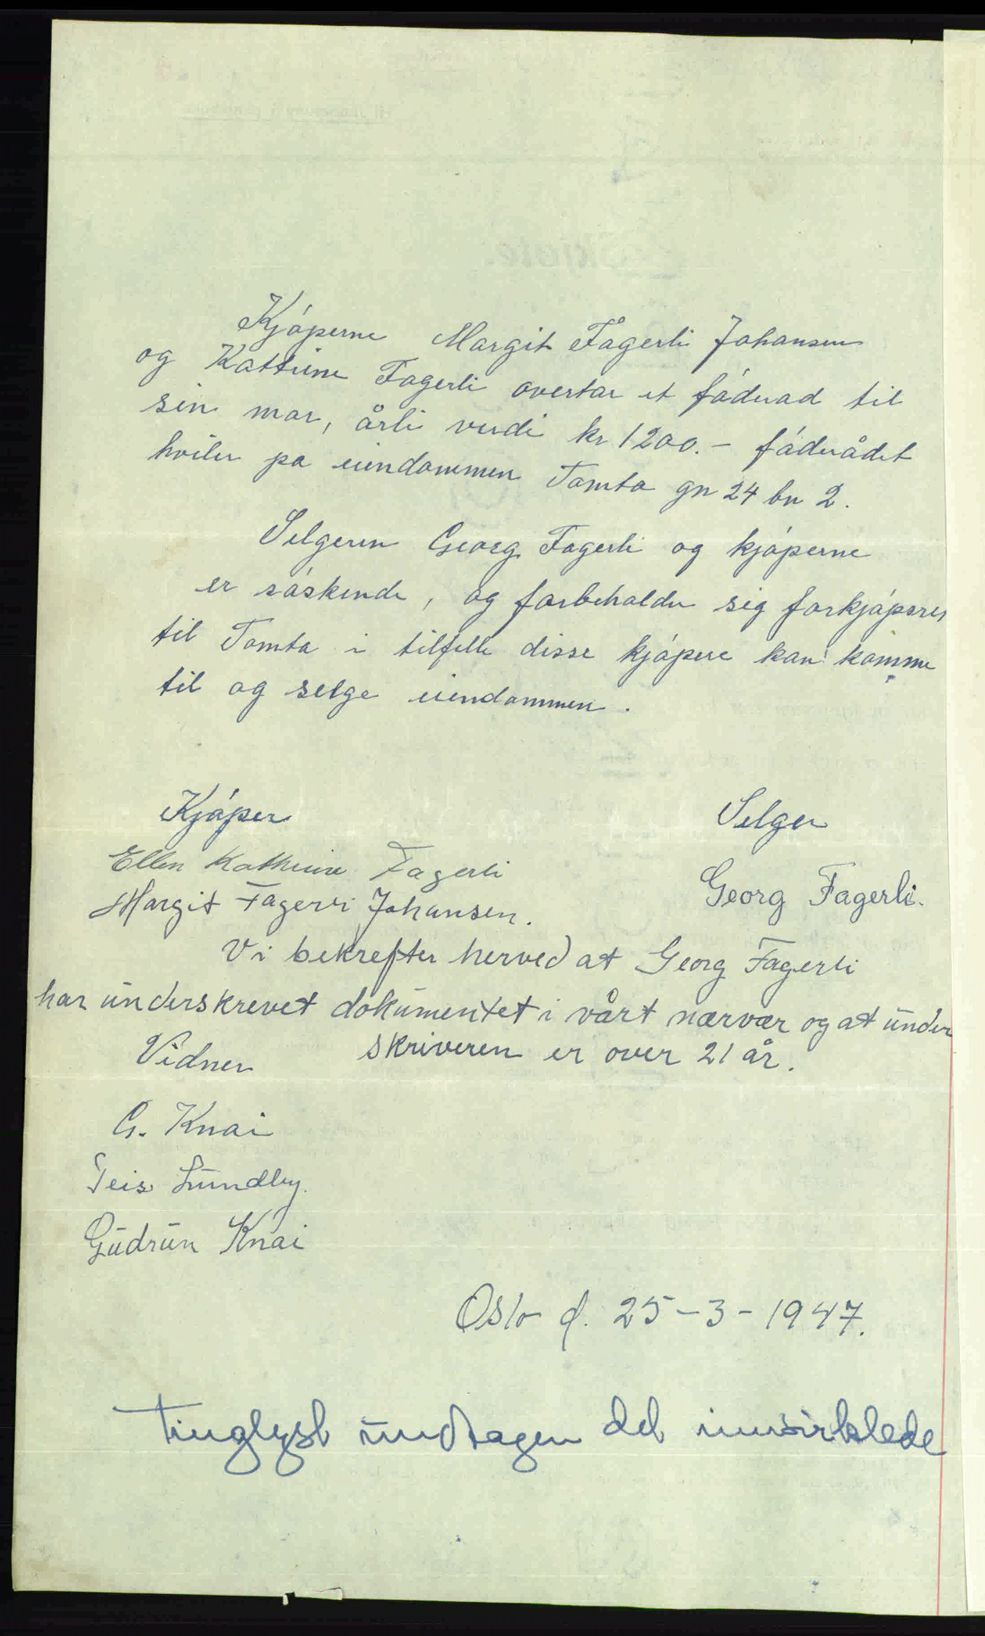 Kjøperne Margit Fagerli Johansen
og Kathrine Fagerli overtar et føderåd til
sin mor, årli verdi kr 1200.- føderådet
hviler på eiendommen Tomta gn 24 bn 2.
Selgeren Georg Fagerli og kjøperne
er søskende, og forbeholder sig forkjøpsret
til Tomta i tilfelle disse kjøpere kan komme
til og selge eiendommen.
Kjøper Selger
Ellen Kathrine Fagerli
Georg Fagerli.
Margit Fagerli Johansen.
Vi bekrefter herved at Georg Fagerli
har underskrevet dokumentet i vårt nærvær og at under
skriveren er over 21 år.
Vidner
G. Knai
Lundby.
Gudrun Knai
Oslo d. 25-3-1947.
Tinglyst undtagen det innsirklede